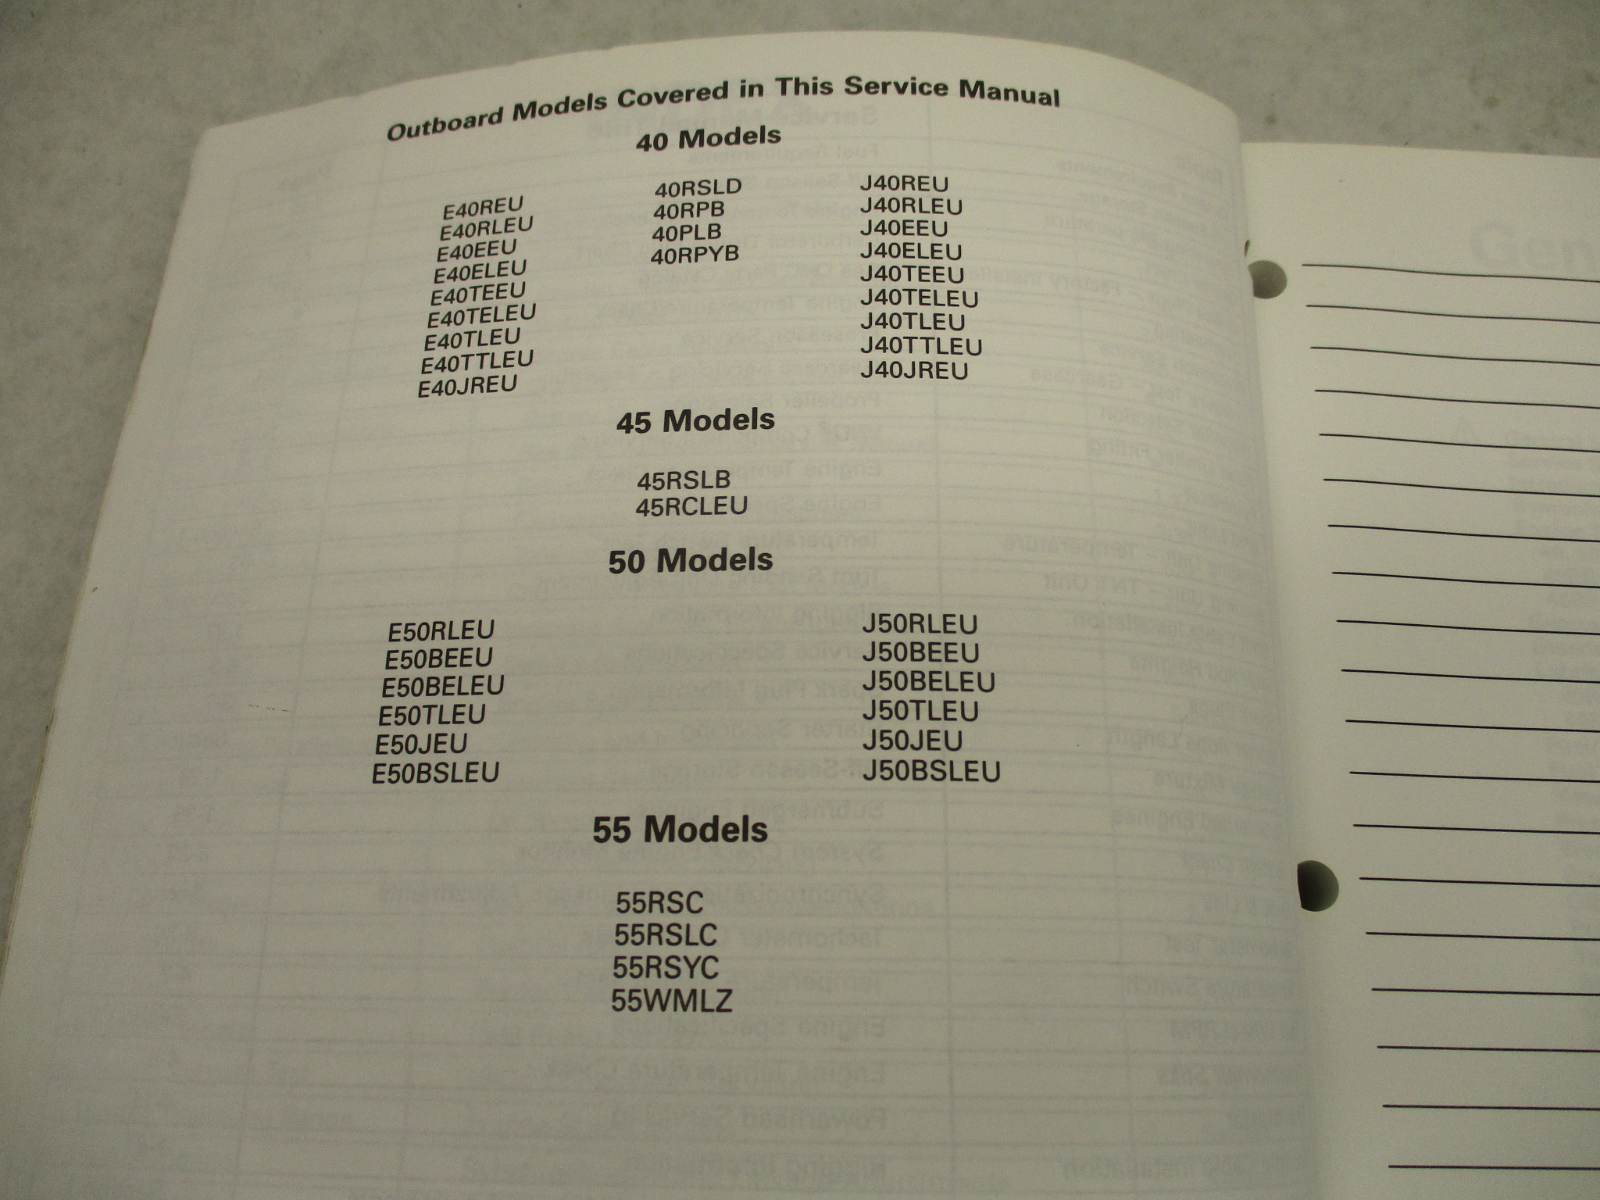 Outboard Models Covered in This Service Manual
40 Models
E40REU
E40RLEU
E40EEU
E40ELEU
E40TEEU
E40TELEU
E40TLEU
E40TTLEU
E40JREU
40RSLD
40RPB
40PLB
40RPYB
J40REU
J40RLEU
J40EEU
J40ELEU
J40TEEU
J40TELEU
J40TLEU
J40TTLEU
J40JREU
45 Models
45RSLB
45RCLEU
50 Models
E50RLEU
E50BEEU
E50BELEU
E50TLEU
E50JEU
E50BSLEU
J50RLEU
J50BEEU
J50BELEU
J50TLEU
J50JEU
J50BSLEU
55 Models
55RSC
55RSLC
55RSYC
55WMLZ